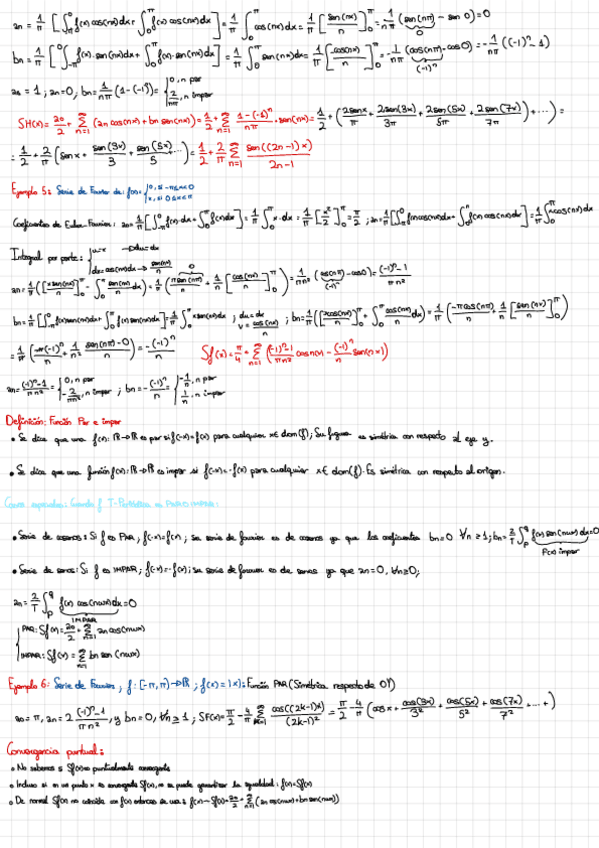 an = 1/π [∫_{-π}^{0} f(x) cos(nx)dx + ∫_0^π f(x) cos(nx)dx] = 1/π ∫_0^π cos(nx)dx = 1/π [sen(nx)/n]_0^π = 1/nπ (sen(nπ) - sen 0) = 0
bn = 1/π [∫_{-π}^0 f(x)·sen(nx)dx + ∫_0^π f(x)·sen(nx)dx] = 1/π ∫_0^π sen(nx)dx = 1/π [-cos(nx)/n]_0^π = -1/nπ (cos(nπ) - cos 0) = -1/nπ ((-1)^n - 1)
a0 = 1; an = 0; bn = 1/nπ (1-(-1)^n) = { 0, n par ; 2/nπ, n impar
SH(x) = a0/2 + Σ_{n=1}^∞ (an cos(nx) + bn sen(nx)) = 1/2 + Σ_{n=1}^∞ 1-(-1)^n/nπ · sen(nx) = 1/2 + (2senx/π + 2sen(3x)/3π + 2sen(5x)/5π + 2sen(7x)/7π + ...) =
= 1/2 + 2/π [senx + sen(3x)/3 + sen(5x)/5 + ...] = 1/2 + 2/π Σ_{n=1}^∞ sen((2n-1)x)/2n-1
Ejemplo 5: Serie de Fourier de: f(x) = { 0, si -π≤x<0 ; x, si 0≤x≤π
Coeficientes de Euler-Fourier: a0 = 1/π [∫_{-π}^0 f(x)dx + ∫_0^π f(x)dx] = 1/π ∫_0^π x·dx = 1/π [x²/2]_0^π = π/2 ; an = 1/π [∫_{-π}^0 f(x)cos(nx)dx + ∫_0^π f(x)cos(nx)dx] = 1/π ∫_0^π x cos(nx)dx
Integral por partes: { u=x → du=dx ; dv=cos(nx)dx → sen(nx)/n
an = 1/π ([x sen(nx)/n]_0^π - ∫_0^π sen(nx)/n dx) = 1/π (π sen(nπ)/n + 1/n [cos(nx)/n]_0^π) = 1/πn² (cos(nπ) - cos0) = (-1)^n - 1/πn²
bn = 1/π [∫_{-π}^0 f(x)sen(nx)dx + ∫_0^π f(x)sen(nx)dx] = 1/π ∫_0^π x sen(nx)dx ; du=dx v=cos(nx)/n ; bn = 1/π ([-xcos(nx)/n]_0^π + ∫_0^π cos(nx)/n dx) = 1/π (-π cos(nπ)/n + 1/n [sen(nx)/n]_0^π)
= 1/π (-π(-1)^n/n + 1/n² sen(nπ) - 0) = -(-1)^n/n Sf(x) = π/4 + Σ_{n=1}^∞ ((-1)^n-1/πn² cos(nx) - (-1)^n/n sen(nx))
an = (-1)^n-1/πn² = { 0, n par ; -2/πn², n impar ; bn = -(-1)^n/n = { -1/n, n par ; 1/n, n impar
Definición: Función Par e impar
• Se dice que una f(x): R→R es par si f(-x)=f(x) para cualquier x∈dom(f); Su figura es simétrica con respecto al eje y.
• Se dice que una función f(x): R→R es impar si f(-x)=-f(x) para cualquier x∈dom(f). Es simétrica con respecto al origen.
Casos especiales: Cuando f T-Periódica es PAR O IMPAR:
• Serie de cosenos: Si f es PAR, f(-x)=f(x); su serie de fourier es de cosenos ya que los coeficientes bn=0 ∀n≥1; bn = 2/T ∫_p^q f(x) sen(nwx)dx=0
f(x) impar
• Serie de senos: Si f es IMPAR, f(-x)=-f(x); su serie de fourier es de senos ya que an=0, ∀n≥0;
an = 2/T ∫_p^q f(x) cos(nwx)dx = 0
IMPAR
PAR: Sf(x) = a0/2 + Σ_{n=1}^∞ an cos(nwx)
IMPAR: Sf(x) = Σ_{n=1}^∞ bn sen(nwx)
Ejemplo 6: Serie de Fourier, f: [-π, π)→R ; f(x)=|x|: Función PAR (Simétrica respecto de OY)
a0 = π, an = 2 (-1)^n-1/πn², y bn=0, ∀n≥1 ; SF(x) = π/2 - 4/π Σ_{k=1}^∞ cos((2k-1)x)/(2k-1)² = π/2 - 4/π (cosx + cos(3x)/3² + cos(5x)/5² + cos(7x)/7² + ... + )
Convergencia puntual:
• No sabemos si Sf(x) es puntualmente convergente
• Incluso si en un punto x es convergente Sf(x), no se puede garantizar la igualdad: f(x)=Sf(x)
• De normal Sf(x) no coincide con f(x) entonces se usa: f(x)~Sf(x)= a0/2 + Σ_{n=1}^∞ (an cos(nwx) + bn sen(nwx))